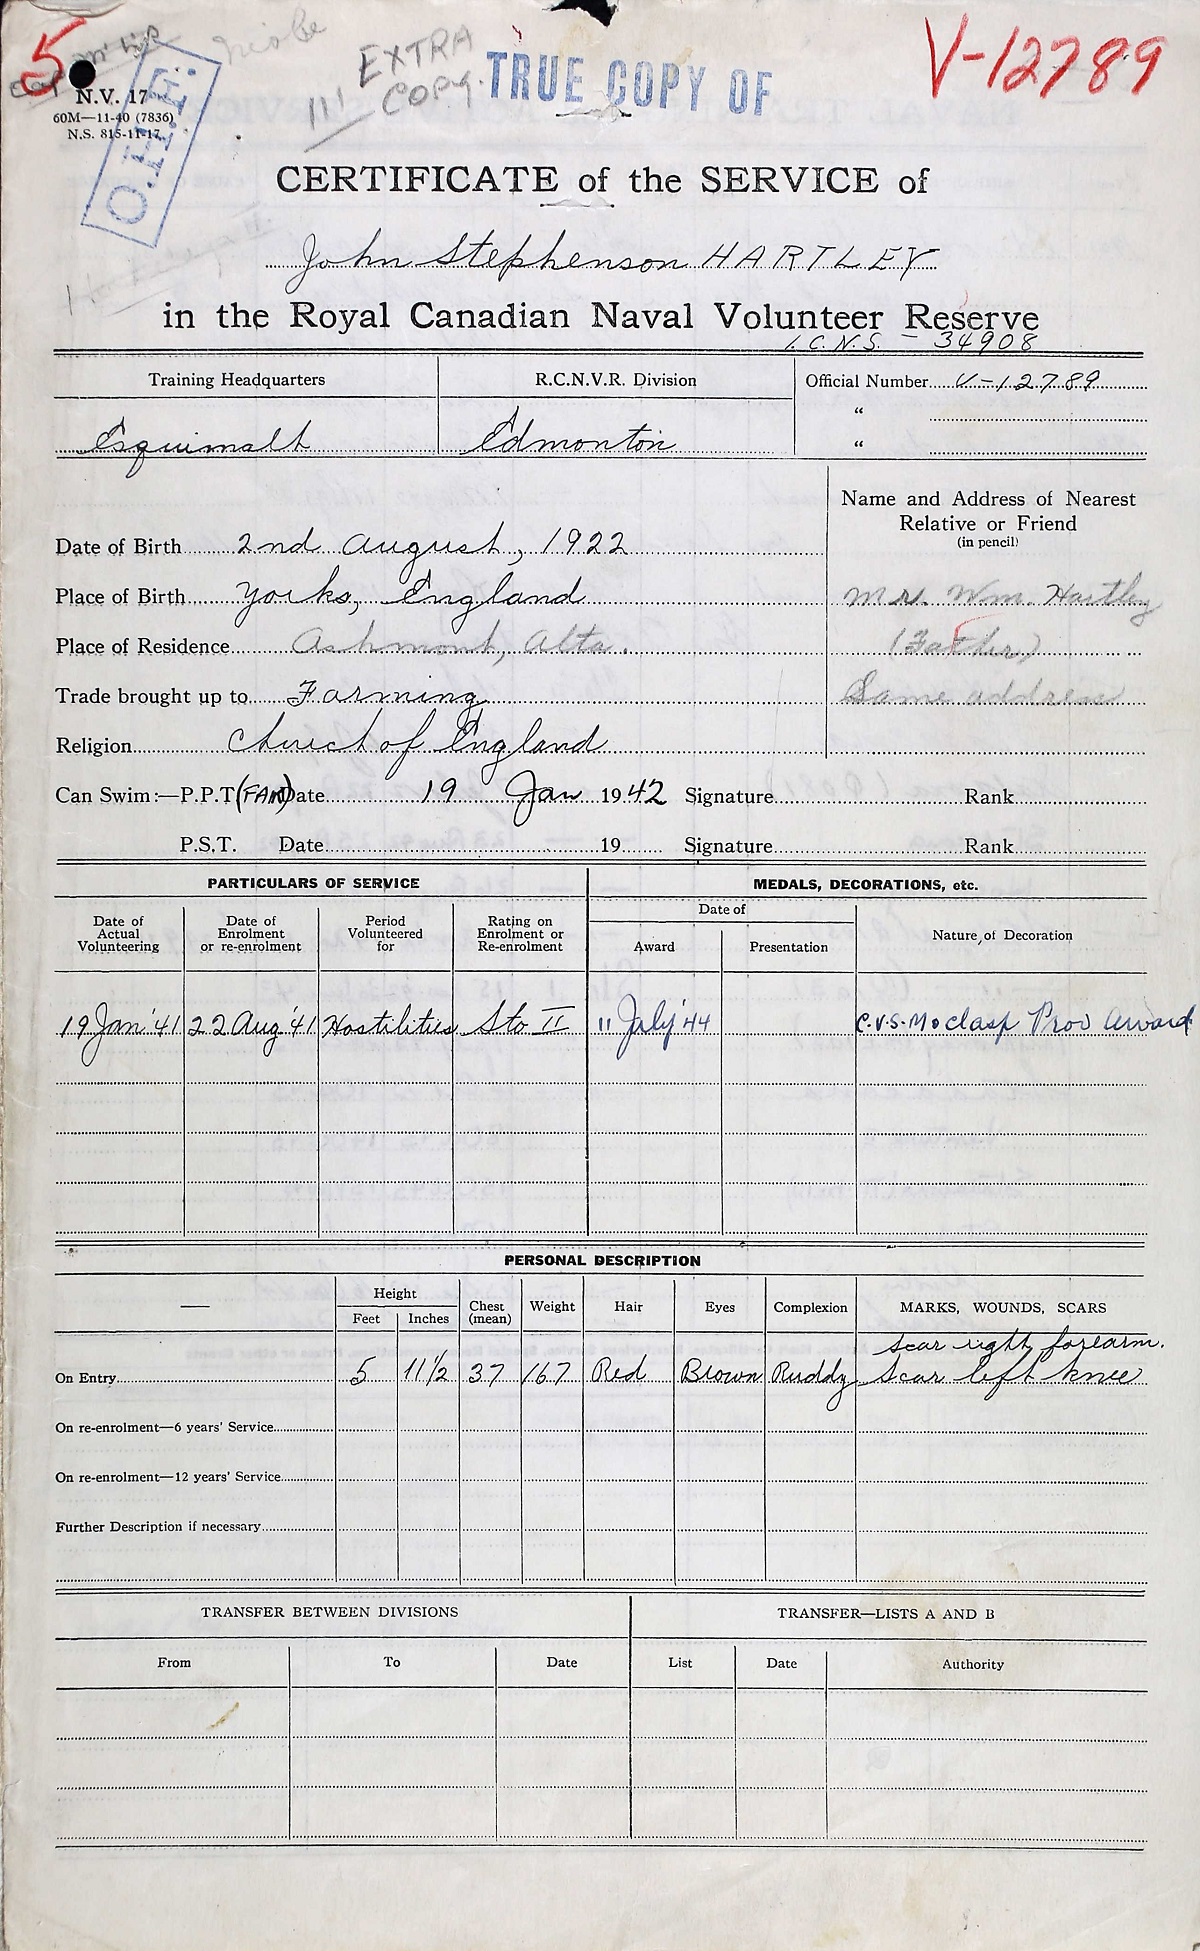 5
Niobe
EXTRA
COPY.
TRUE COPY OF
V-12789
N.V. 17
60M—11-40 (7836)
N.S. 815-11-17
O.H.F.
CERTIFICATE of the SERVICE of
John Stephenson HARTLEY
in the Royal Canadian Naval Volunteer Reserve
I.C.N.S. - 34908
Training Headquarters R.C.N.V.R. Division Official Number V-12789
“
Esquimalt Edmonton “
Name and Address of Nearest
Relative or Friend
(in pencil)
Date of Birth 2nd August, 1922
Place of Birth Yorks, England Mr. Wm. Hartley
Place of Residence Ashmont, Alta. (Father)
Trade brought up to Farming Same address
Religion Church of England
Can Swim:—P.P.T. Date 19 Jan 1942 Signature Rank
P.S.T. Date 19 Signature Rank
PARTICULARS OF SERVICE MEDALS, DECORATIONS, etc.
Date of Actual Volunteering Date of Enrolment or re-enrolment Period Volunteered for Rating on Enrolment or Re-enrolment Date of Award Presentation Nature of Decoration
19 Jan '41 22 Aug '41 Hostilities Sto II 11 July '44 C.V.S.M & clasp Prov Award
PERSONAL DESCRIPTION
— Height Feet Inches Chest (mean) Weight Hair Eyes Complexion MARKS, WOUNDS, SCARS
scar right forearm.
On Entry 5 11 1/2 37 167 Red Brown Ruddy Scar left knee
On re-enrolment—6 years' Service
On re-enrolment—12 years' Service
Further Description if necessary
TRANSFER BETWEEN DIVISIONS TRANSFER—LISTS A AND B
From To Date List Date Authority